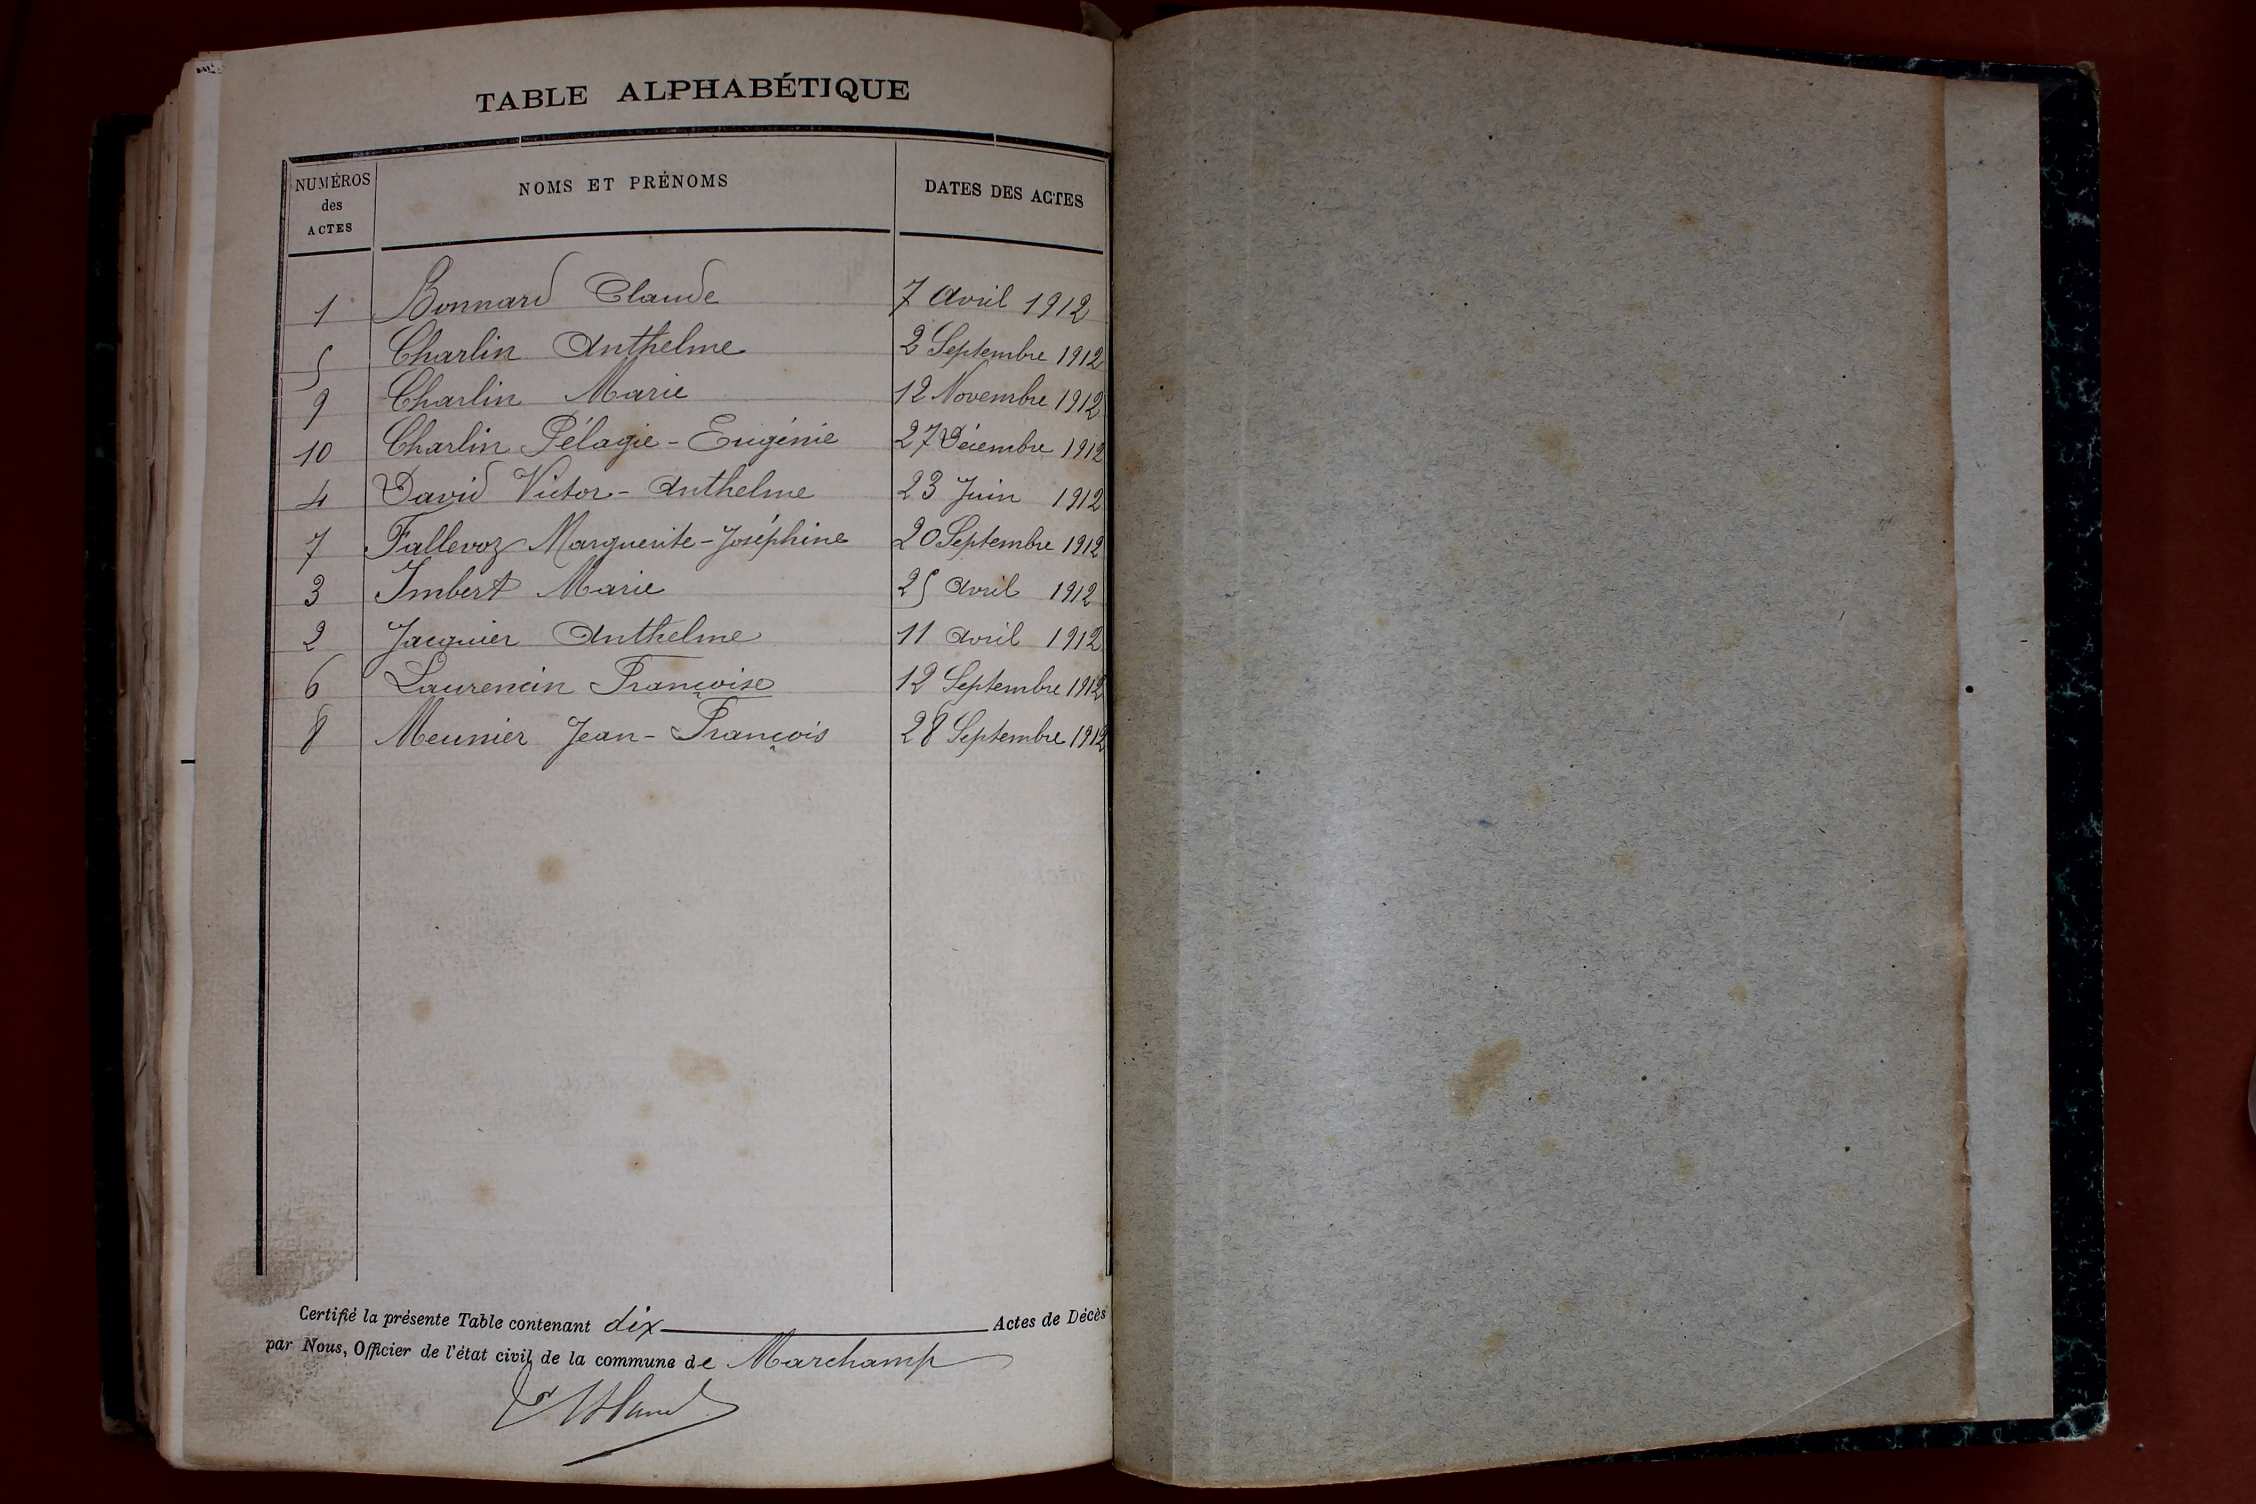 TABLE ALPHABÉTIQUE
NUMÉROS des ACTES NOMS ET PRÉNOMS DATES DES ACTES
1 Bonnard Claude 7 Avril 1912
5 Charlin Anthelme 2 Septembre 1912
9 Charlin Marie 12 Novembre 1912
10 Charlin Pélagie-Eugénie 27 Décembre 1912
4 David Victor-Anthelme 23 Juin 1912
7 Fallevoz Marguerite-Joséphine 20 Septembre 1912
3 Imbert Marie 25 Avril 1912
2 Jacquier Anthelme 11 Avril 1912
6 Laurencin Françoise 12 Septembre 1912
8 Meunier Jean-François 28 Septembre 1912
Certifié la présente Table contenant dix Actes de Décès
par Nous, Officier de l'état civil de la commune de Marchamp